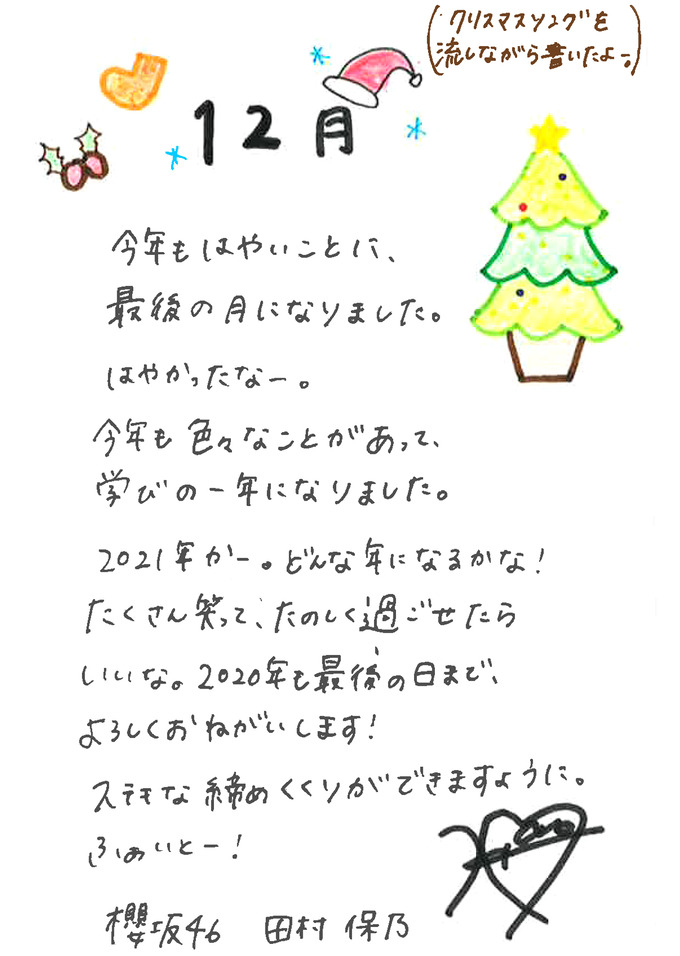 (クリスマスソングを
流しながら書いたよー。)
12月
今年もはやいことに、
最後の月になりました。
はやかったなー。
今年も色々なことがあって、
学びの一年になりました。
2021年かー。どんな年になるかな！
たくさん笑って、たのしく過ごせたら
いいな。2020年も最後の日まで、
よろしくおねがいします！
ステキな締めくくりができますように。
ふぁいとー！
櫻坂46 田村 保乃